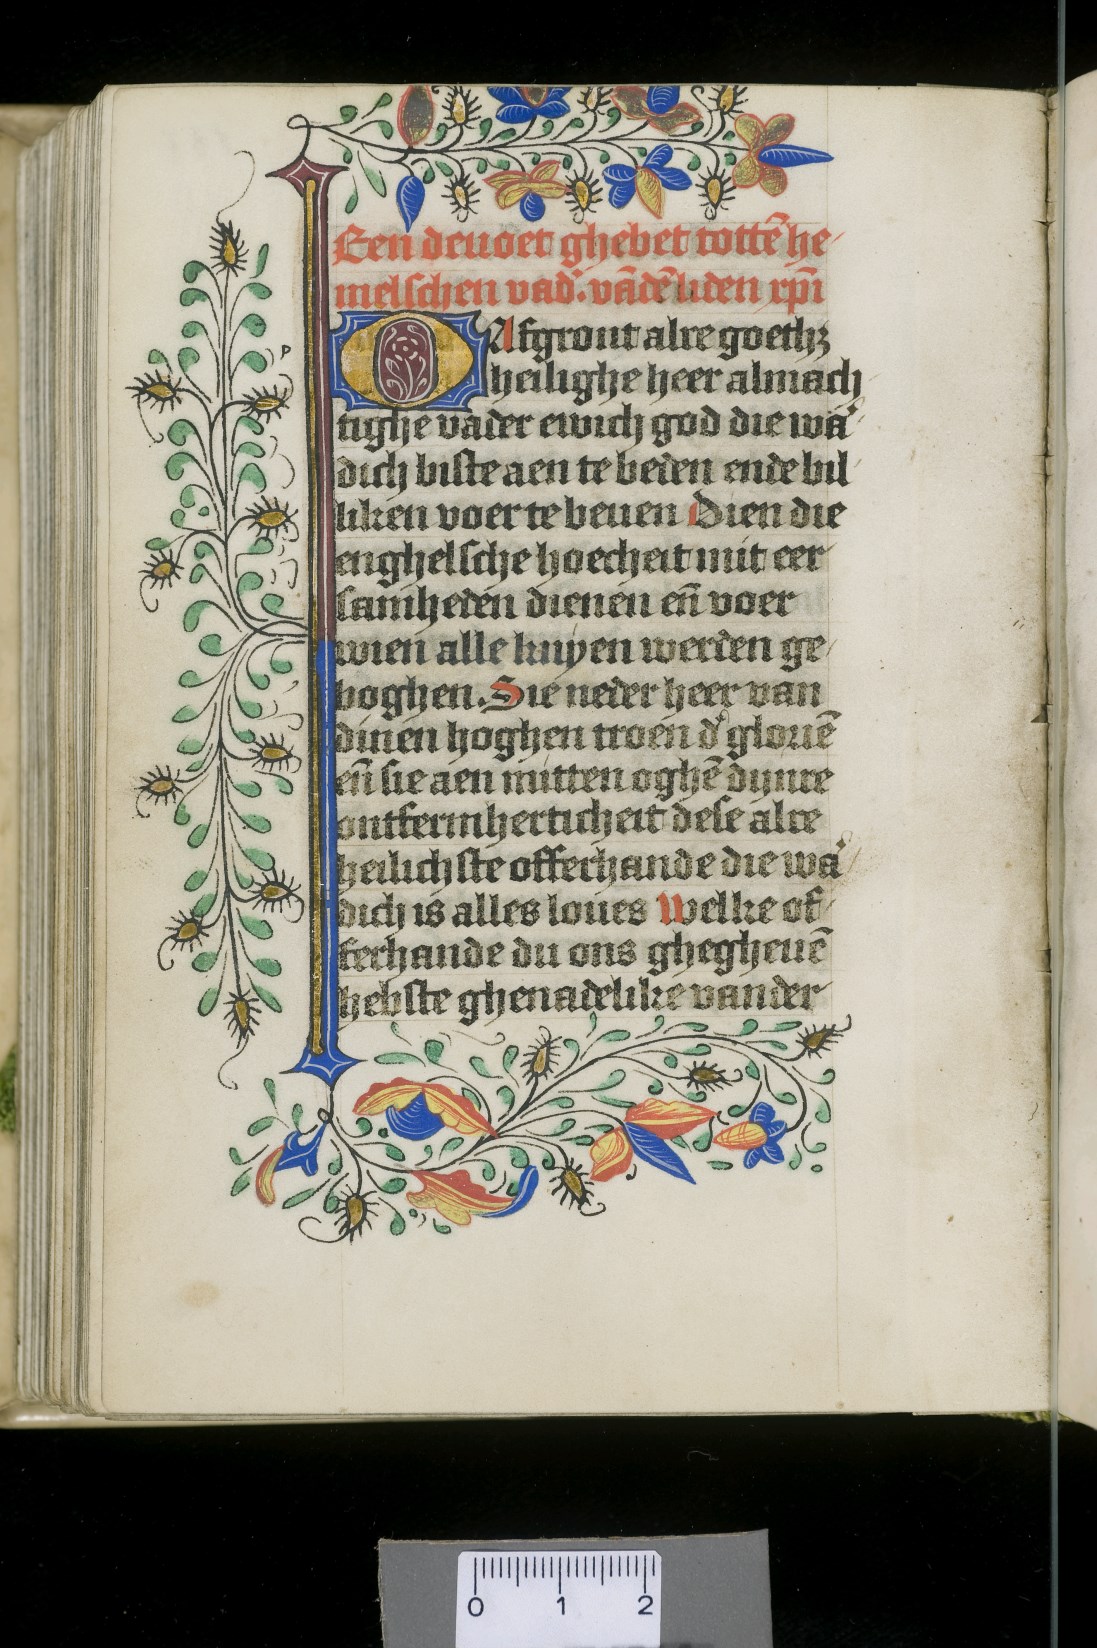 Een deuoet ghebet tottē he-
melschen vad'. vādē liden xpi
O Afgront alre goethz
heilighe heer almach-
tighe vader ewich god die wa'-
dich biste aen te beden ende bil-
liken voer te beuen Dien die
enghelsche hoecheit mit eer-
samheden dienen eñ voer
wien alle knyen werden ge-
boghen. Sie neder heer van
dinen hoghen troen d' gloriē
eñ sie aen mitten oghē dijnre
ontfermherticheit dese alre
heilichste offerhande die wa'-
dich is alles loues Welke of-
ferhande du ons ghegheuē
hebste ghenadelike vander
0 1 2